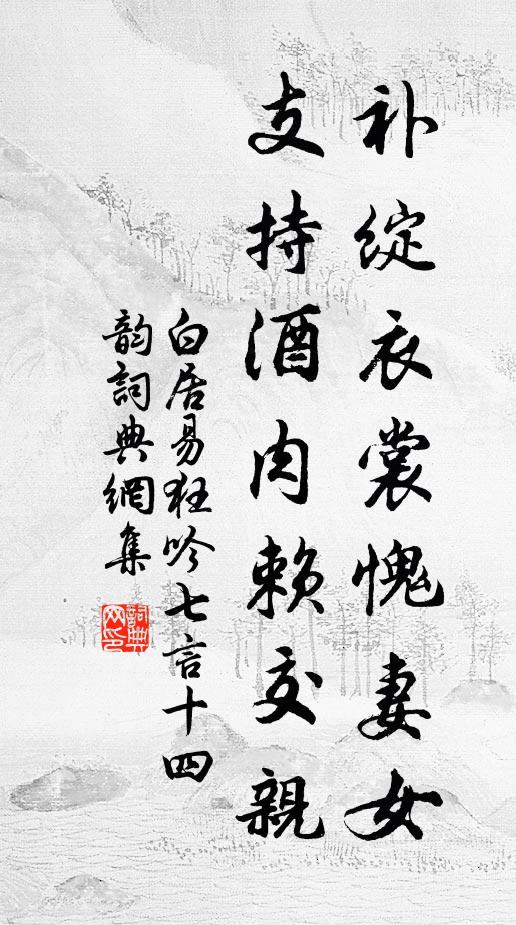 补绽衣裳愧妻女
支持酒肉赖交親
白居易狂吟七言十四
韵詞典網集
詞典
网印